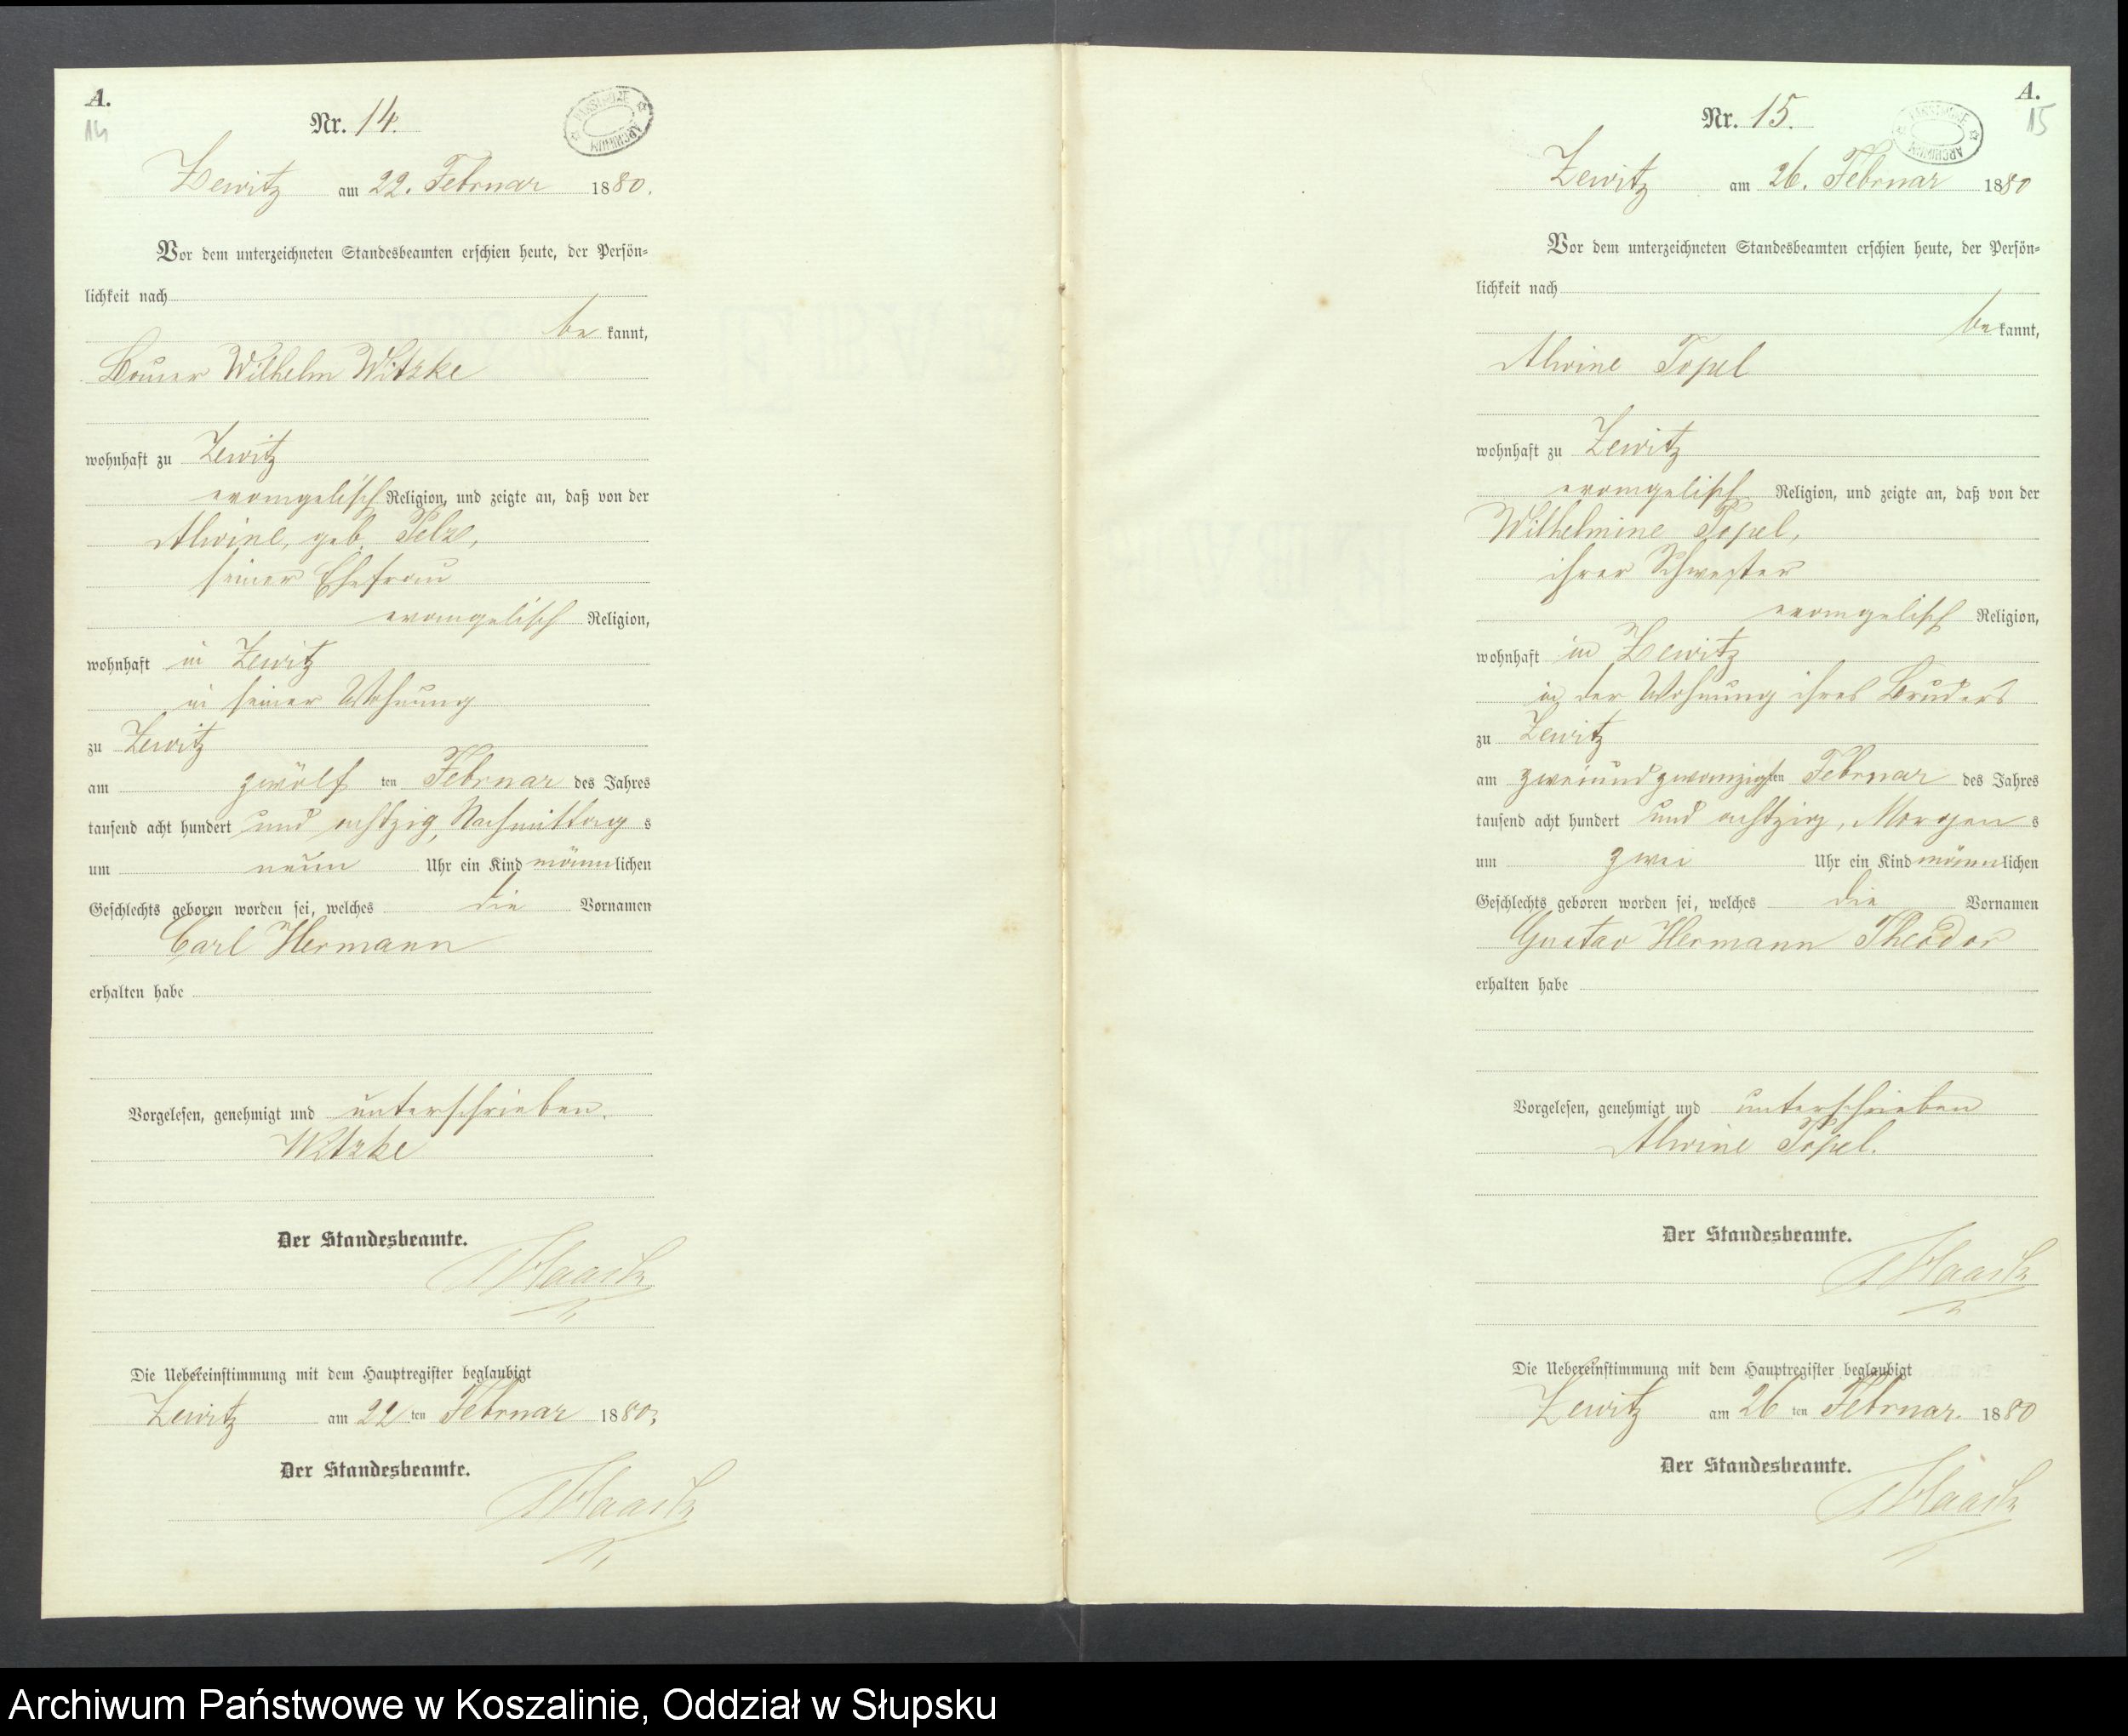 A.
14
Nr. 14.
Zewitz am 22. Februar 1880.
Vor dem unterzeichneten Standesbeamten erschien heute, der Persön-
lichkeit nach
be kannt,
Bauer Wilhelm Witzke
wohnhaft zu Zewitz
evangelisch Religion, und zeigte an, daß von der
Alwine, geb. Pelz,
seiner Ehefrau
evangelisch Religion,
wohnhaft in Zewitz
in seiner Wohnung
zu Zewitz
am zwölf ten Februar des Jahres
tausend acht hundert und achtzig, Nachmittag s
um neun Uhr ein Kind männlichen
Geschlechts geboren worden sei, welches die Vornamen
Carl Hermann
erhalten habe
Vorgelesen, genehmigt und unterschrieben.
Witzke
Der Standesbeamte.
Die Uebereinstimmung mit dem Hauptregister beglaubigt
Zewitz am 22 ten Februar 1880.
Der Standesbeamte.
A.
15
Nr. 15.
Zewitz am 26. Februar 1880
Vor dem unterzeichneten Standesbeamten erschien heute, der Persön-
lichkeit nach
be kannt,
Alwine Topel
wohnhaft zu Zewitz
evangelisch Religion, und zeigte an, daß von der
Wilhelmine Topel,
ihrer Schwester
evangelisch Religion,
wohnhaft in Zewitz
in der Wohnung ihres Bruders
zu Zewitz
am zweiundzwanzigsten Februar des Jahres
tausend acht hundert und achtzig, Morgen s
um zwei Uhr ein Kind männlichen
Geschlechts geboren worden sei, welches die Vornamen
Gustav Hermann Theodor
erhalten habe
Vorgelesen, genehmigt und unterschrieben
Alwine Topel.
Der Standesbeamte.
Die Uebereinstimmung mit dem Hauptregister beglaubigt
Zewitz am 26 ten Februar. 1880
Der Standesbeamte.
Archiwum Państwowe w Koszalinie, Oddział w Słupsku